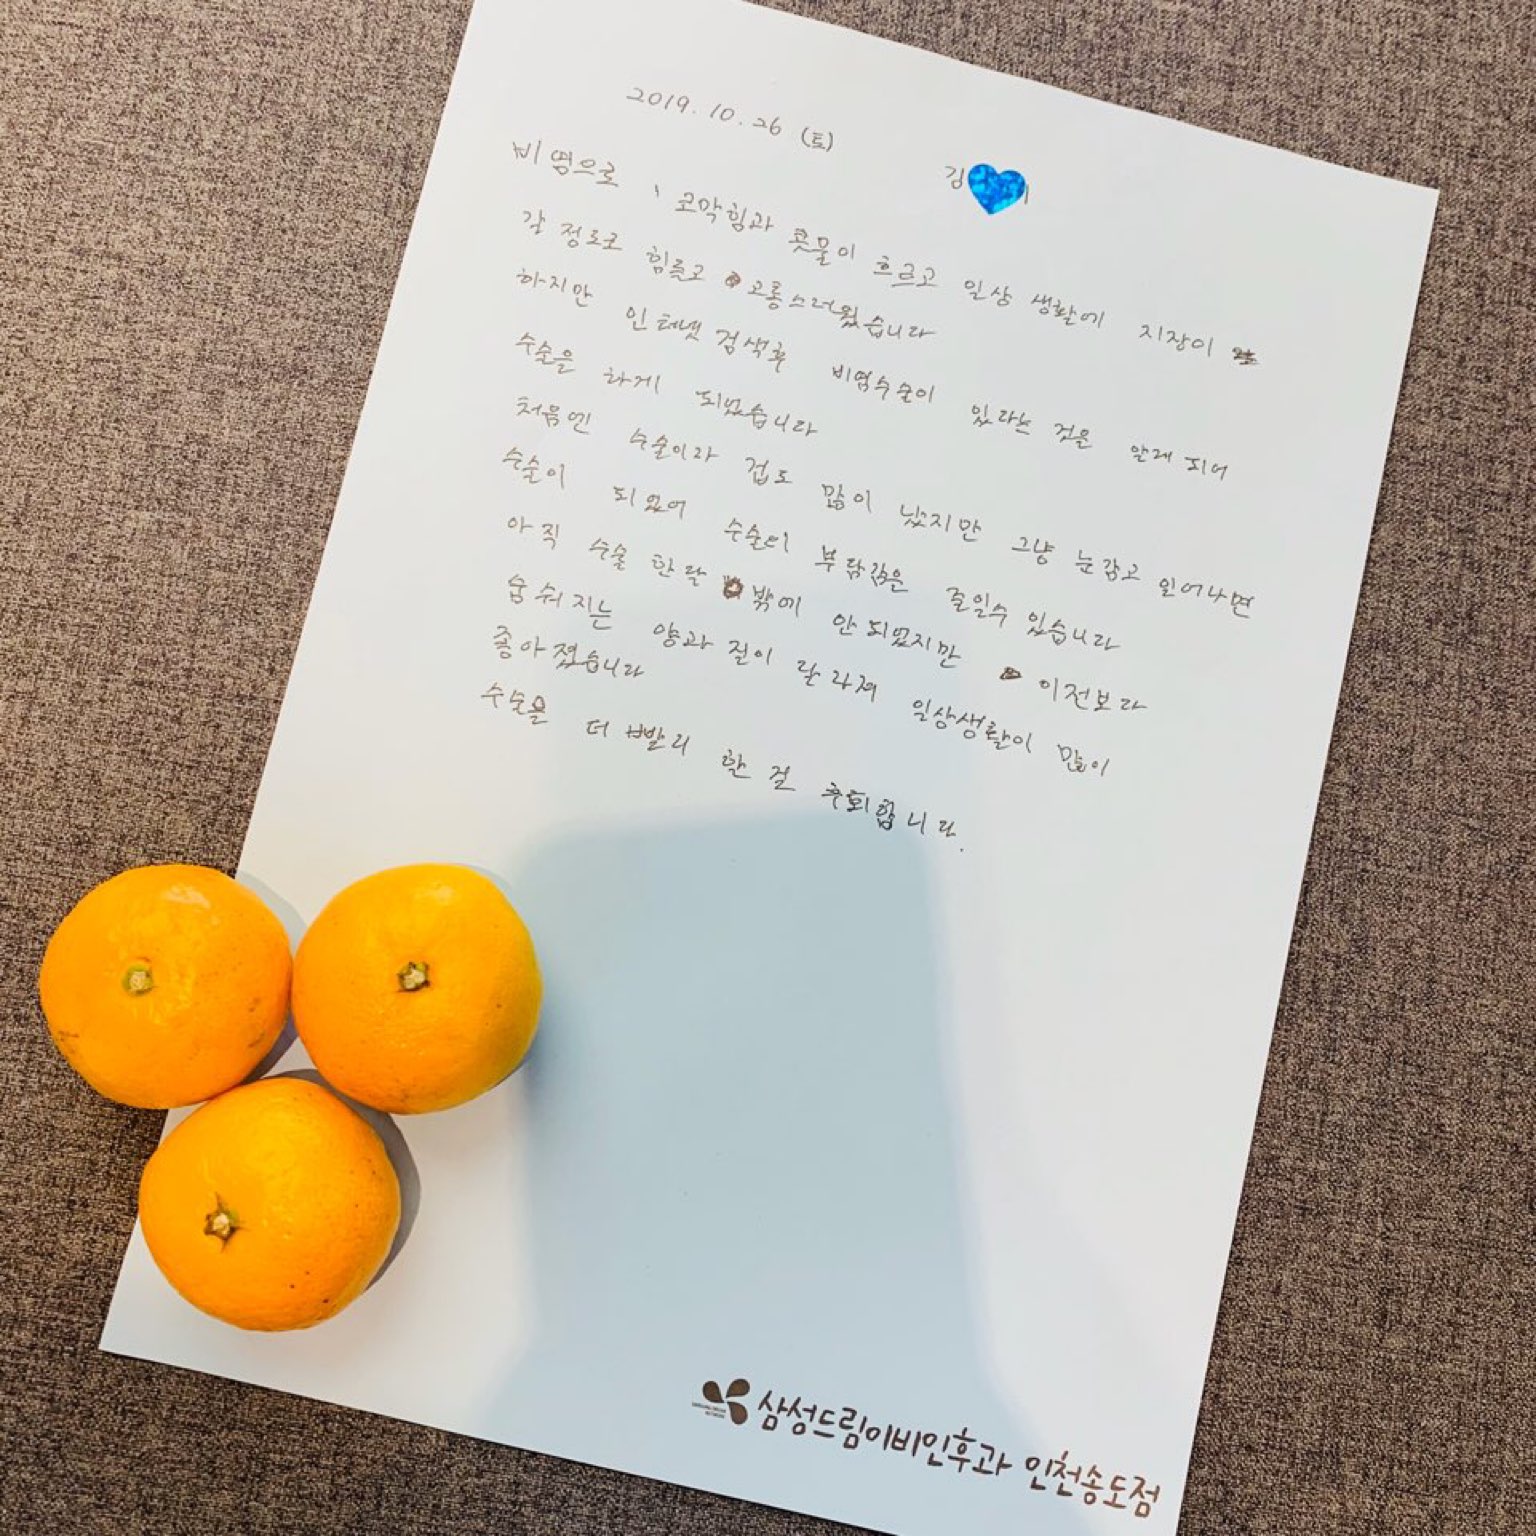 2019. 10. 26 (토)
김
비염으로 코막힘과 콧물이 흐르고 일상 생활에 지장이
갈 정도로 힘들고 고통스러웠습니다
하지만 인터넷 검색후 비염수술이 있다는 것을 알게 되어
수술을 하게 되었습니다
처음엔 수술이라 겁도 많이 났지만 그냥 눈감고 일어나면
수술이 되있어 수술의 부담감은 줄일수 있습니다
아직 수술 한달 밖에 안되었지만 이전보다
숨쉬지는 양과 질이 달라져 일상생활이 많이
좋아졌습니다
수술을 더 빨리 할 걸 후회합니다.
삼성드림이비인후과 인천송도점